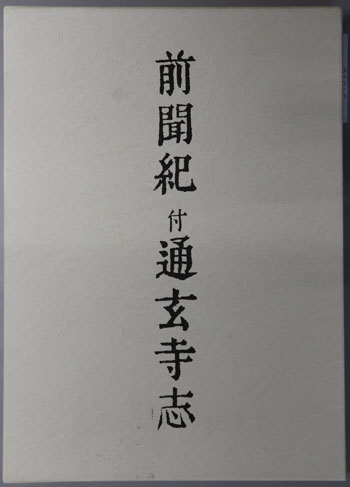 前聞紀付通玄寺志